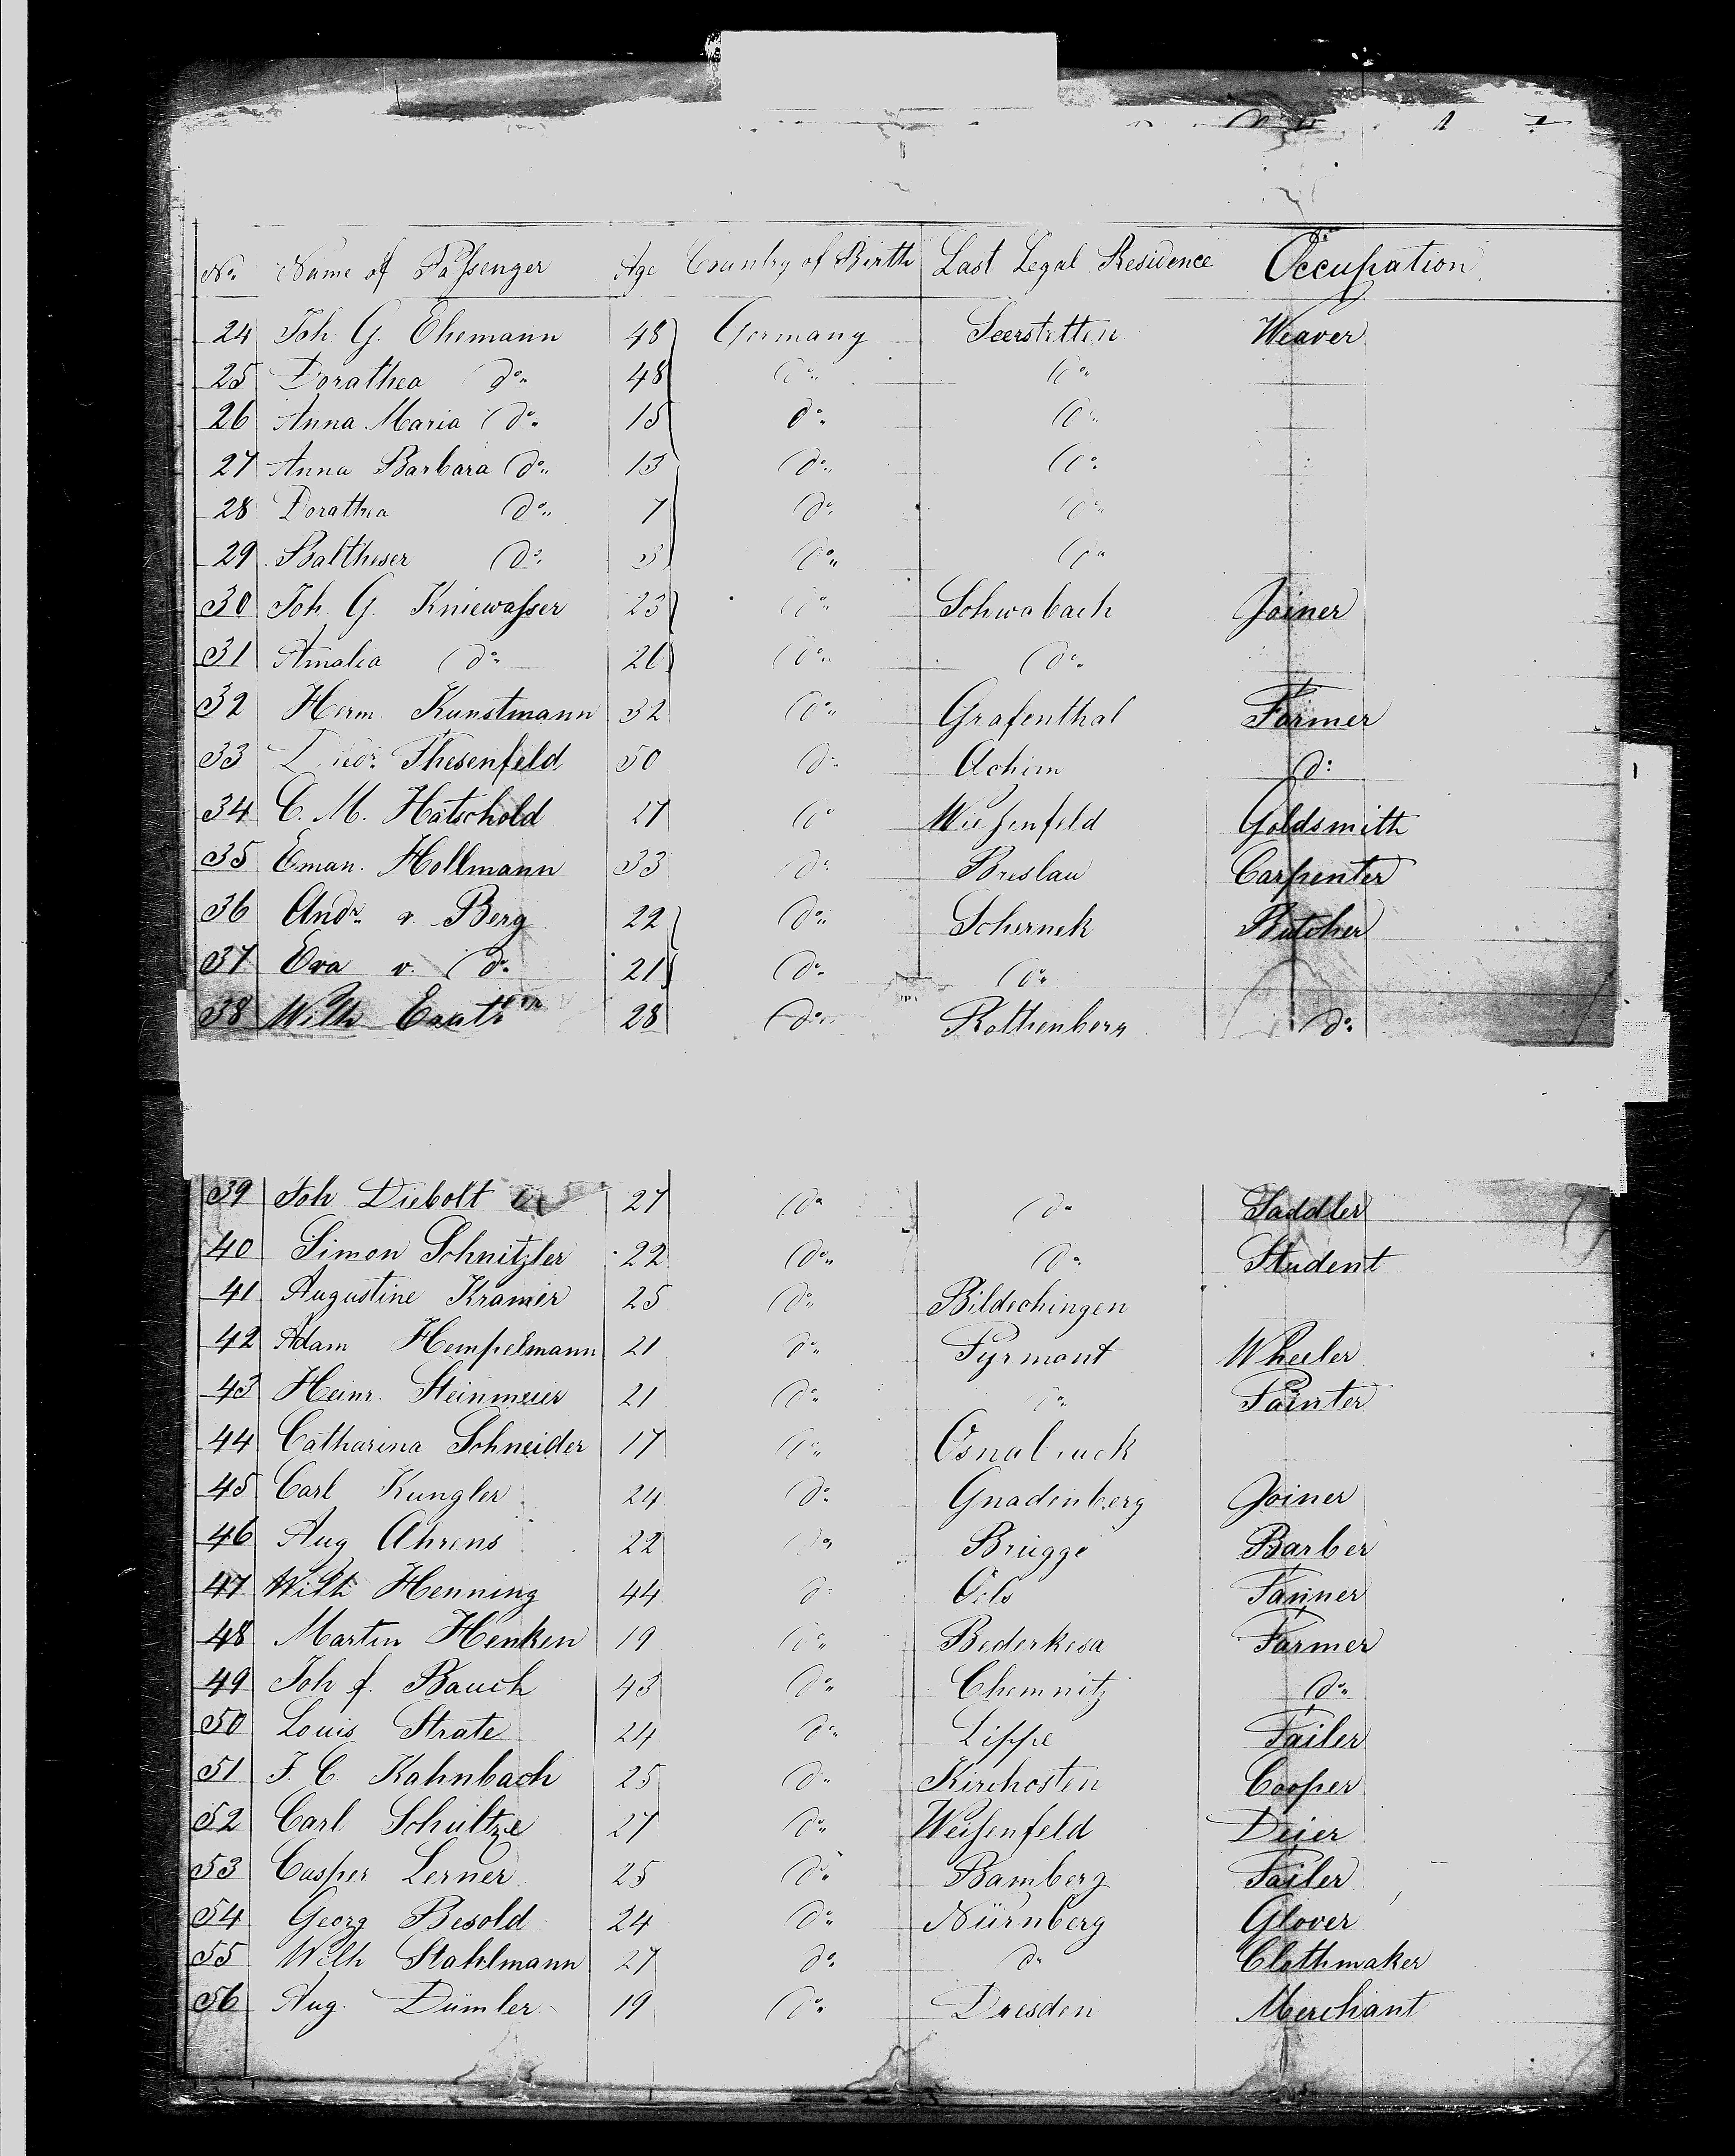 No. Name of Passenger Age Country of Birth Last Legal Residence Occupation
24 Joh. G. Ehemann 48 Germany Seerstetten Weaver
25 Dorathea do. 48 do. do.
26 Anna Maria do. 15 do. do.
27 Anna Barbara do. 13 do. do.
28 Dorathea do. 7 do. do.
29 Baltheser do. 3 do. do.
30 Joh. G. Kniewasser 23 do. Schwabach Joiner
31 Amalia do. 26 do. do.
32 Herm. Kunstmann 32 do. Grafenthal Farmer
33 Diedr. Thesenfeld 50 do. Achim do.
34 C. M. Hatschold 27 do. Weisenfeld Goldsmith
35 Eman. Hollmann 33 do. Breslau Carpenter
36 Andr. v. Berg 22 do. Schernek Butcher
37 Eva v. do. 21 do. do.
38 Wilh 28 do. Rothenberg do.
39 Joh Diebolt 27 do. do. Saddler
40 Simon Schnitzler 22 do. do. Student
41 Augustine Kramer 25 do. Bildechingen
42 Adam Hempelmann 21 do. Pyrmont Wheeler
43 Heinr. Steinmeier 21 do. do. Painter
44 Catharina Schneider 17 do. Osnabruck
45 Carl Kungler 24 do. Gnadenberg Joiner
46 Aug Ahrens 22 do. Brügge Barber
47 Wilh Henning 44 do. Oels Tanner
48 Martin Henken 19 do. Bederkesa Farmer
49 Joh f. Bauch 43 do. Chemnitz do.
50 Louis Strate 24 do. Lippe Tailer
51 F. C. Kahnbach 25 do. Kirchosten Cooper
52 Carl Schultze 27 do. Weisenfeld Deier
53 Casper Lerner 25 do. Bamberg Tailer
54 Georg Besold 24 do. Nürnberg Glover
55 Wilh Stahlmann 27 do. do. Clothmaker
56 Aug. Dümler 19 do. Dresden Merchant